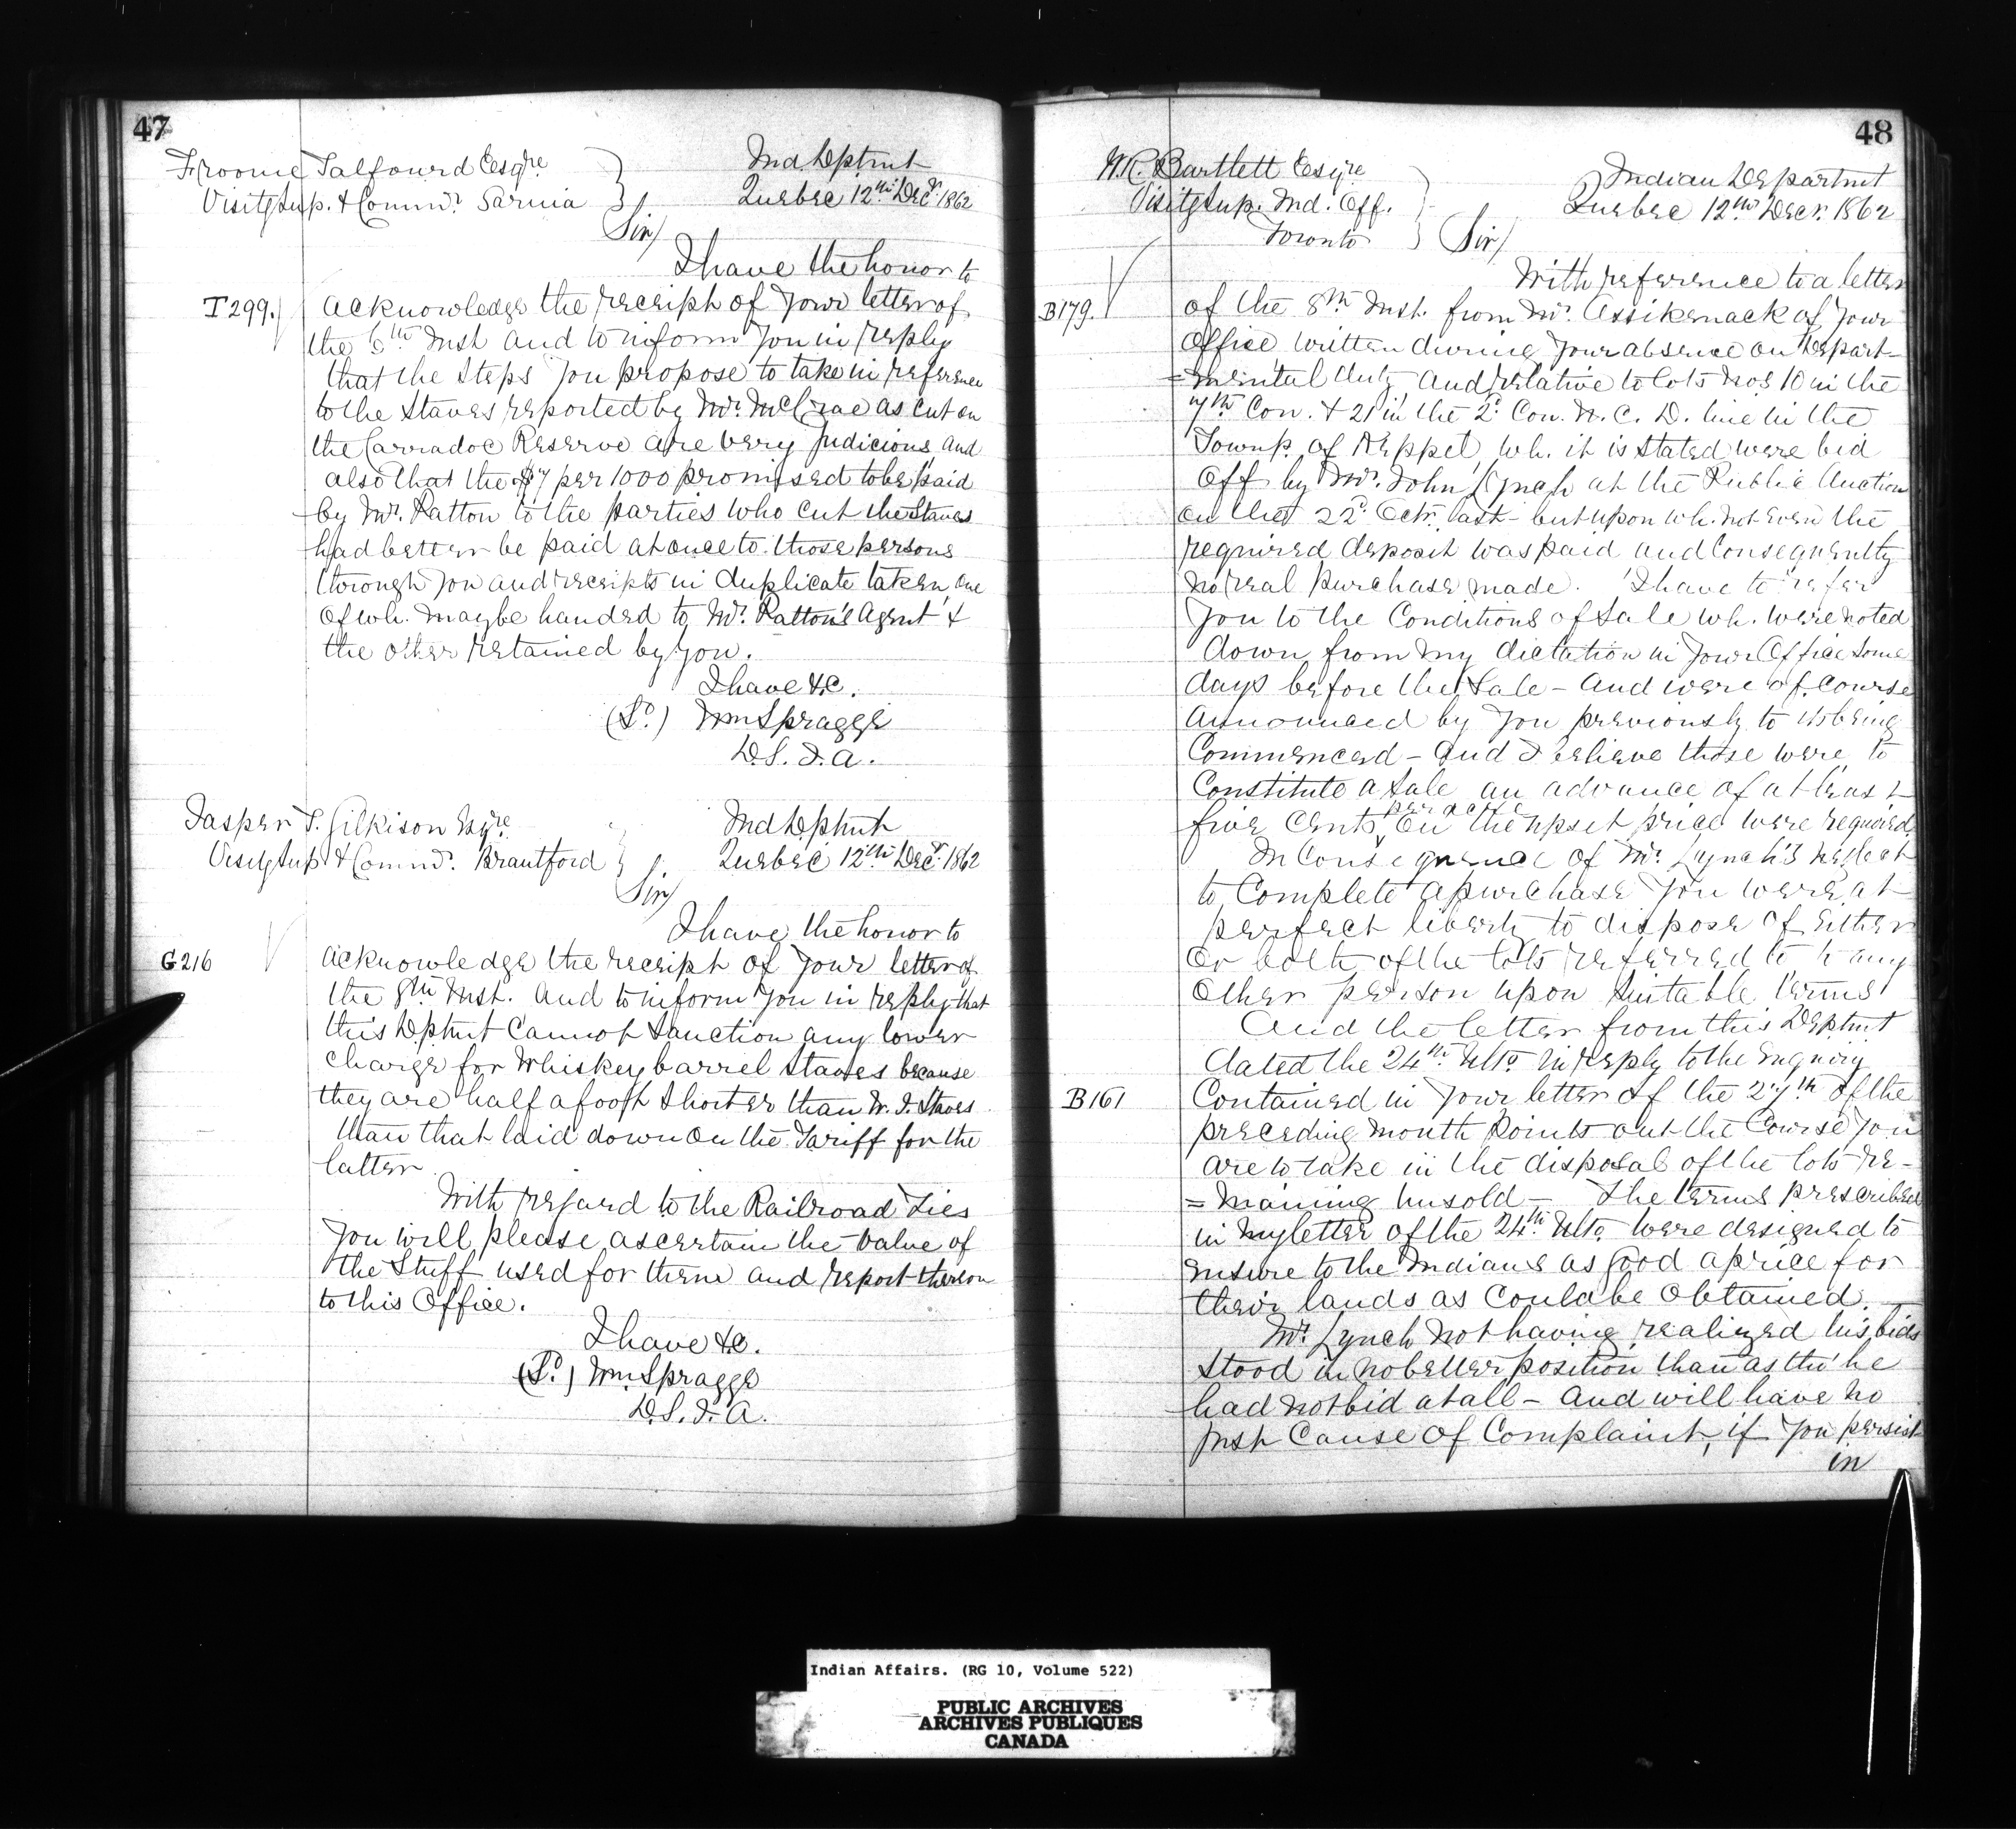 47
Froome Talfourd Esqre
Visitg Sup. & Commr. Sarnia
Ind Deptmt
Quebec 12th Decr. 1862
Sir/
I have the honor to
T299. acknowledge the receipt of your letter of
the 6th Inst and to inform you in reply
that the steps you propose to take in reference
to the Staves reported by Mr. McCrae as cut on
the Carradoc Reserve are very judicious and
also that the $7 per 1000 promised to be paid
by Mr. Ratton to the parties who cut the Staves
had better be paid at once to those persons
through you and receipts in duplicate taken one
of wh. may be handed to Mr. Ratton's Agent &
the other retained by you.
I have &c.
(Sd.) Wm Spragge
D.S.I.A.
Jasper T. Gilkison Esqre.
Visitg Sup & Commr. Brantford
Ind Deptmt
Quebec 12th Decr. 1862
Sir/
I have the honor to
G216 acknowledge the receipt of your letter of
the 8th Inst. and to inform you in reply that
this Deptmt cannot sanction any lower
charge for Whiskey barrel staves because
they are half a foot shorter than W.I. Staves
than that laid down on the Tariff for the
latter
With regard to the Railroad Ties
you will please ascertain the value of
the stuff used for them and report thereon
to this Office.
I have &c.
(Sd.) Wm Spragge
D.S.I.A.
48
W.R. Bartlett Esqre
Visitg Sup. Ind. Off.
Toronto
Indian Departmt
Quebec 12th Decr. 1862
Sir/
With reference to a letter
B179. of the 8th Inst. from Mr. Assikenack of your
Office written during your absence on Depart-
=mental duty and relative to lots Nos 10 in the
7th Con. & 21 in the 2d Con. W.C.D. line in the
Townp. of Keppel, wh. it is stated were bid
off by Mr. John Lynch at the Public Auction
on the 22d Octr. last - but upon wh. not even the
required deposit was paid and consequently
no real purchase made. I have to refer
you to the Conditions of Sale wh. were noted
down from my dictation in your Office some
days before the Sale - and were of course
announced by you previously to its being
commenced - and I believe those were to
constitute a sale an advance of at least
five cents per acre on the upset price were required.
In consequence of Mr. Lynch's neglect
to complete a purchase you were at
perfect liberty to dispose of either
or both of the lots referred to to any
other person upon suitable terms
And the letter from this Deptmt
dated the 24th Ulto. in reply to the enquiry
B161 contained in your letter of the 27th of the
preceding month points out the course you
are to take in the disposal of the lots re-
=maining unsold - The terms prescribed
in my letter of the 24th Ulto. were designed to
ensure to the Indians as good a price for
their lands as could be obtained. -
Mr. Lynch not having realized his bids
stood in no better position than as tho' he
had not bid at all - and will have no
just cause of complaint, if you persist
in
Indian Affairs. (RG 10, Volume 522)
PUBLIC ARCHIVES
ARCHIVES PUBLIQUES
CANADA